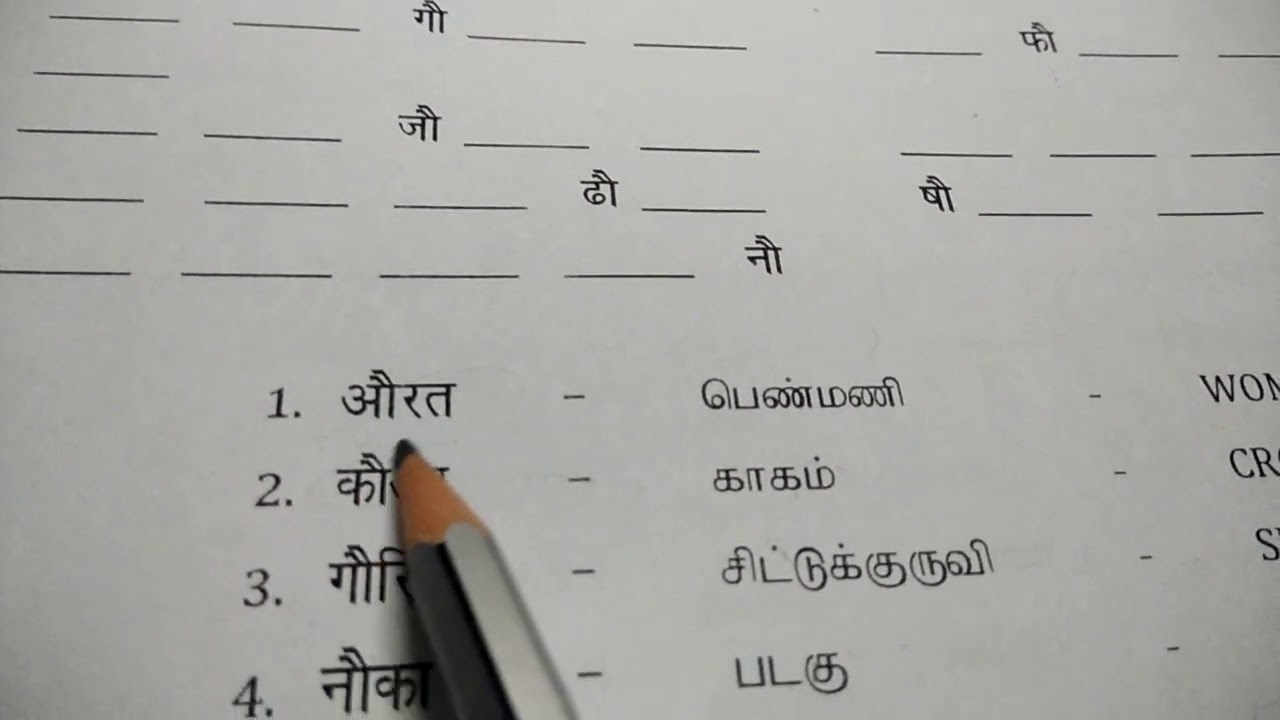 गौ फौ
जौ
ढौ षौ
नौ
1. औरत - பெண்மணி -
2. - காகம் -
3. - சிட்டுக்குருவி -
4. नौका - படகு -